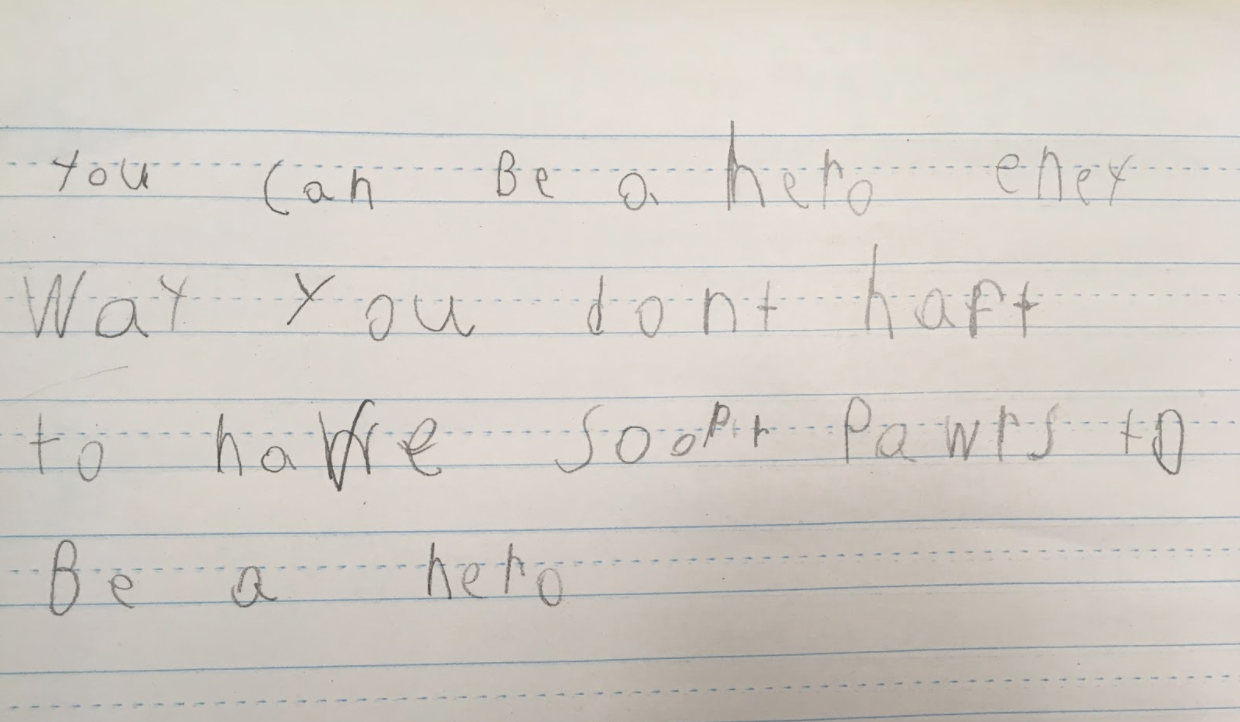 You can Be a hero eney
Way You dont haft
to have soopr Pawrs to
Be a hero